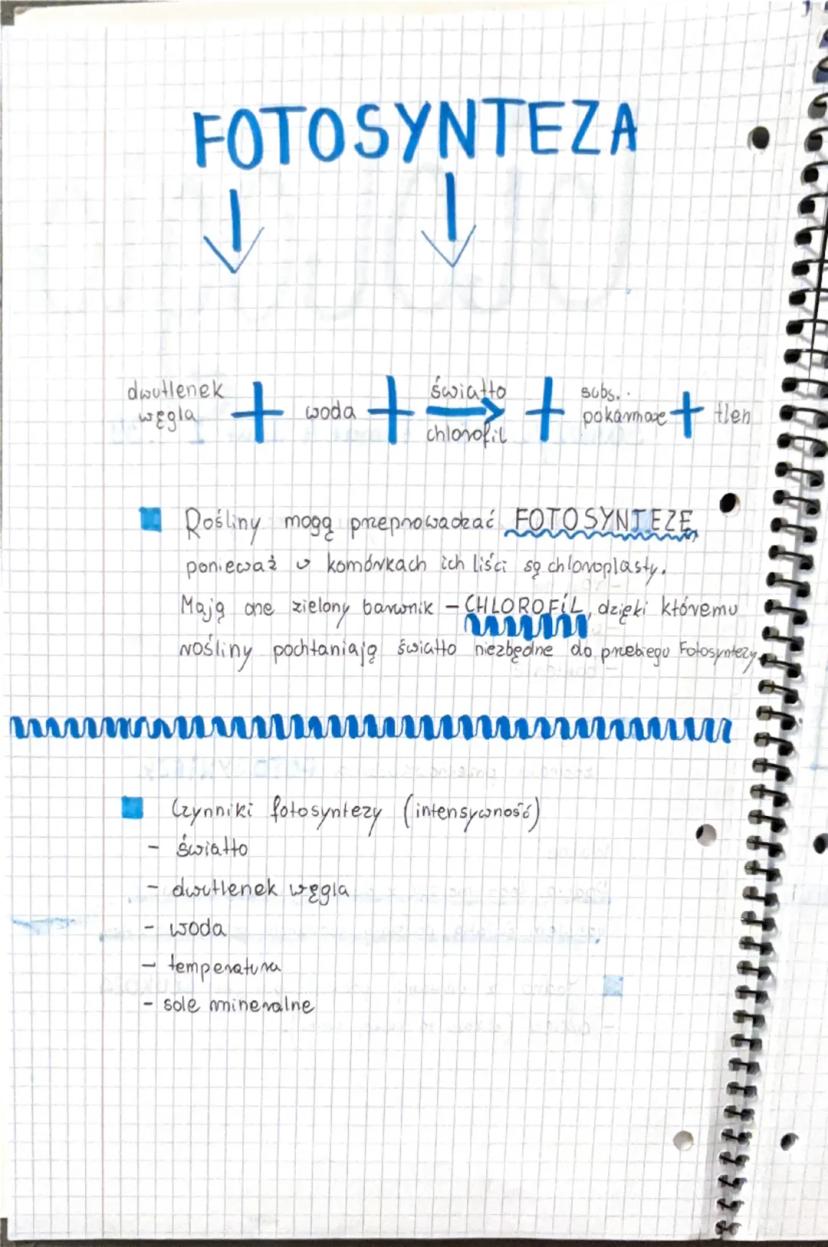 FOTOSYNTEZA
dwutlenek węgla + woda + światło → chlorofil + subs. pokarmowe + tlen
Rośliny mogą przeprowadzać FOTOSYNTEZĘ,
ponieważ w komórkach ich liści są chloroplasty.
Mają one zielony barwnik – CHLOROFIL, dzięki któremu
rośliny pochłaniają światło niezbędne do przebiegu Fotosyntezy.
Czynniki fotosyntezy (intensywność)
- światło
- dwutlenek węgla
- woda
- temperatura
- sole mineralne